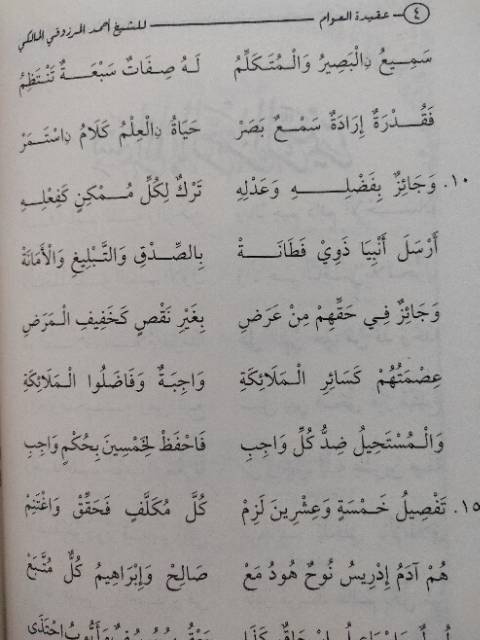 ٤ - عقيدة العوام للشيخ أحمد المرزوقي المالكي
سَمِيعُ نِالْبَصِيرُ وَالْمُتَكَلِّمُ لَهُ صِفَاتٌ سَبْعَةٌ تَنْتَظِمُ
فَقُدْرَةٌ إِرَادَةٌ سَمْعٌ بَصَرْ حَيَاةُ نِالْعِلْمُ كَلَامُ نِاسْتَمَرْ
١٠. وَجَائِزٌ بِفَضْلِهِ وَعَدْلِهِ تَرْكٌ لِكُلِّ مُمْكِنٍ كَفِعْلِهِ
أَرْسَلَ أَنْبِيَا ذَوِيْ فَطَانَةْ بِالصِّدْقِ وَالتَّبْلِيغِ وَالْأَمَانَةْ
وَجَائِزٌ فِي حَقِّهِمْ مِنْ عَرَضِ بِغَيْرِ نَقْصٍ كَخَفِيفِ الْمَرَضِ
عِصْمَتُهُمْ كَسَائِرِ الْمَلَائِكَةِ وَاجِبَةٌ وَفَاضَلُوا الْمَلَائِكَةِ
وَالْمُسْتَحِيلُ ضِدُّ كُلِّ وَاجِبِ فَاحْفَظْ لِخَمْسِينَ بِحُكْمٍ وَاجِبِ
١٥. تَفْصِيلُ خَمْسَةٍ وَعِشْرِينَ لَزِمْ كُلَّ مُكَلَّفٍ فَحَقِّقْ وَاغْتَنِمْ
هُمْ آدَمُ إِدْرِيسُ نُوحٌ هُودُ مَعْ صَالِحْ وَإِبْرَاهِيمُ كُلٌّ مُتَّبَعْ